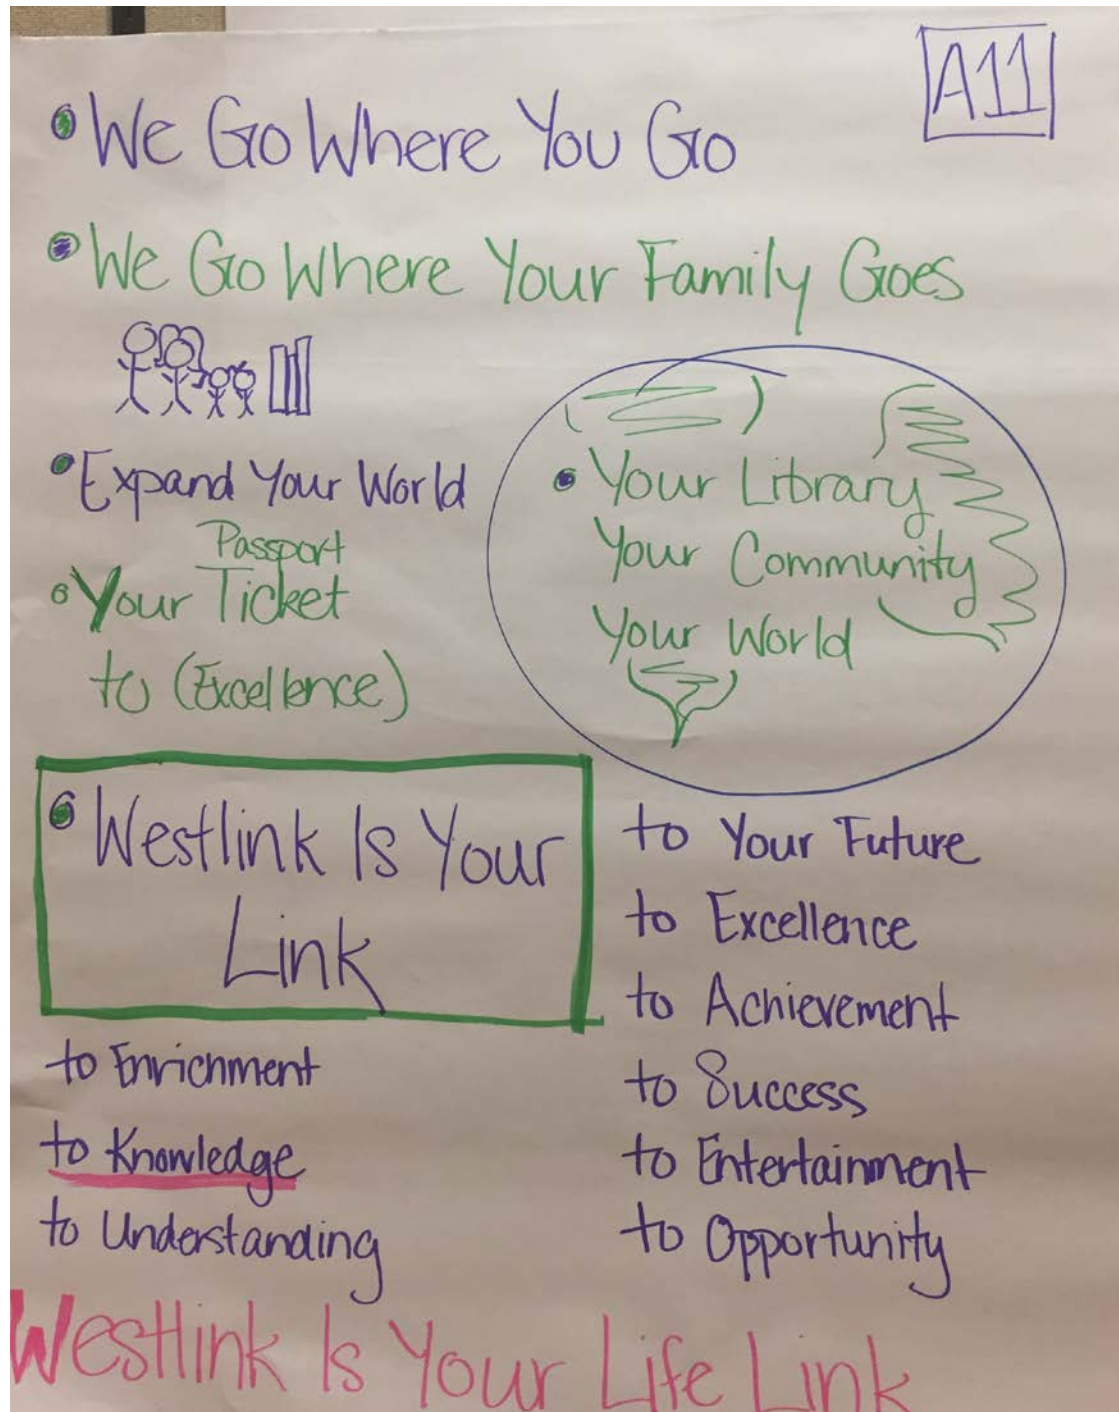 A11
• We Go Where You Go
• We Go Where Your Family Goes
• Expand Your World
Passport
• Your Ticket
to (Excellence)
• Your Library
Your Community
Your World
• Westlink Is Your
Link
to Enrichment
to Knowledge
to Understanding
to Your Future
to Excellence
to Achievement
to Success
to Entertainment
to Opportunity
Westlink Is Your Life Link